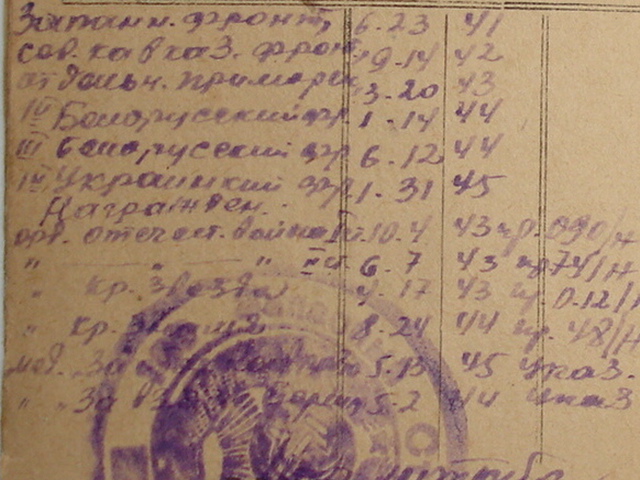 Западн. фронт, 6.23 41
сев. кавказ. фронт, 9.14 42
отдельн. примор 3.20 43
IV Белорусский фр 1.14 44
III Белорусский фр 6.12 44
IV Украинкий фр 1.31 45
Награжден.
орд. отечест. войны 10.4 43 пр. 090/н
" " " II ст. 6.7 43 пр 74/н
" кр. звезда 4.17 43 пр. 0.12/
" кр. звезда 8.24 44 пр. 48/н
мед. За 5.13 45 указ.
" " За взят 5.2 44 указ